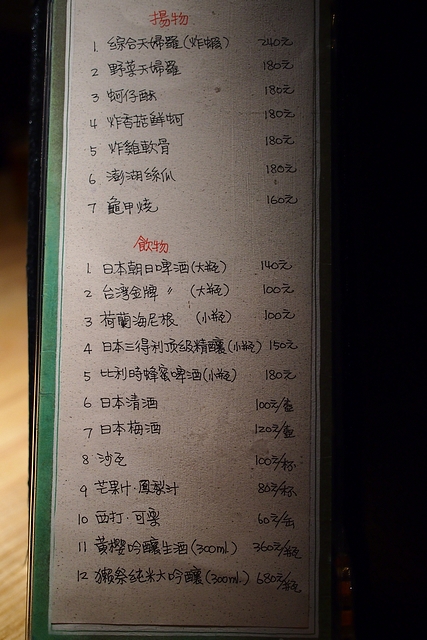 揚物
1 綜合天婦羅(炸蝦) 240元
2 野菜天婦羅 180元
3 蚵仔酥 180元
4 炸香菇鮮蚵 180元
5 炸雞軟骨 180元
6 澎湖絲瓜 180元
7 龜甲燒 160元
飲物
1 日本朝日啤酒(大瓶) 140元
2 台灣金牌 〃 (大瓶) 100元
3 荷蘭海尼根 (小瓶) 100元
4 日本三得利頂級精釀(小瓶) 150元
5 比利時蜂蜜啤酒(小瓶) 180元
6 日本清酒 100元/壺
7 日本梅酒 120元/壺
8 沙瓦 100元/杯
9 芒果汁·鳳梨汁 80元/杯
10 西打·可樂 60元/缶
11 黃櫻吟釀生酒(300ml) 360元/瓶
12 獺祭純米大吟釀(300ml) 680元/瓶